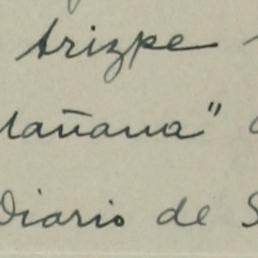 Arizpe
Mañana"
Diario de S